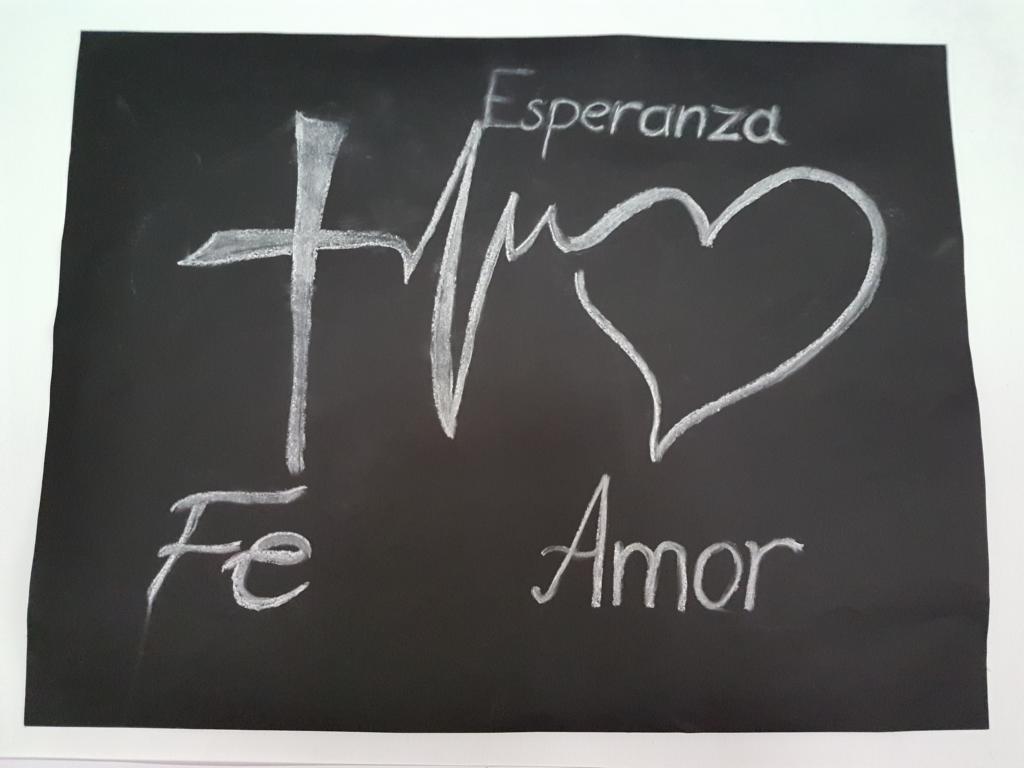 Esperanza
Fe Amor